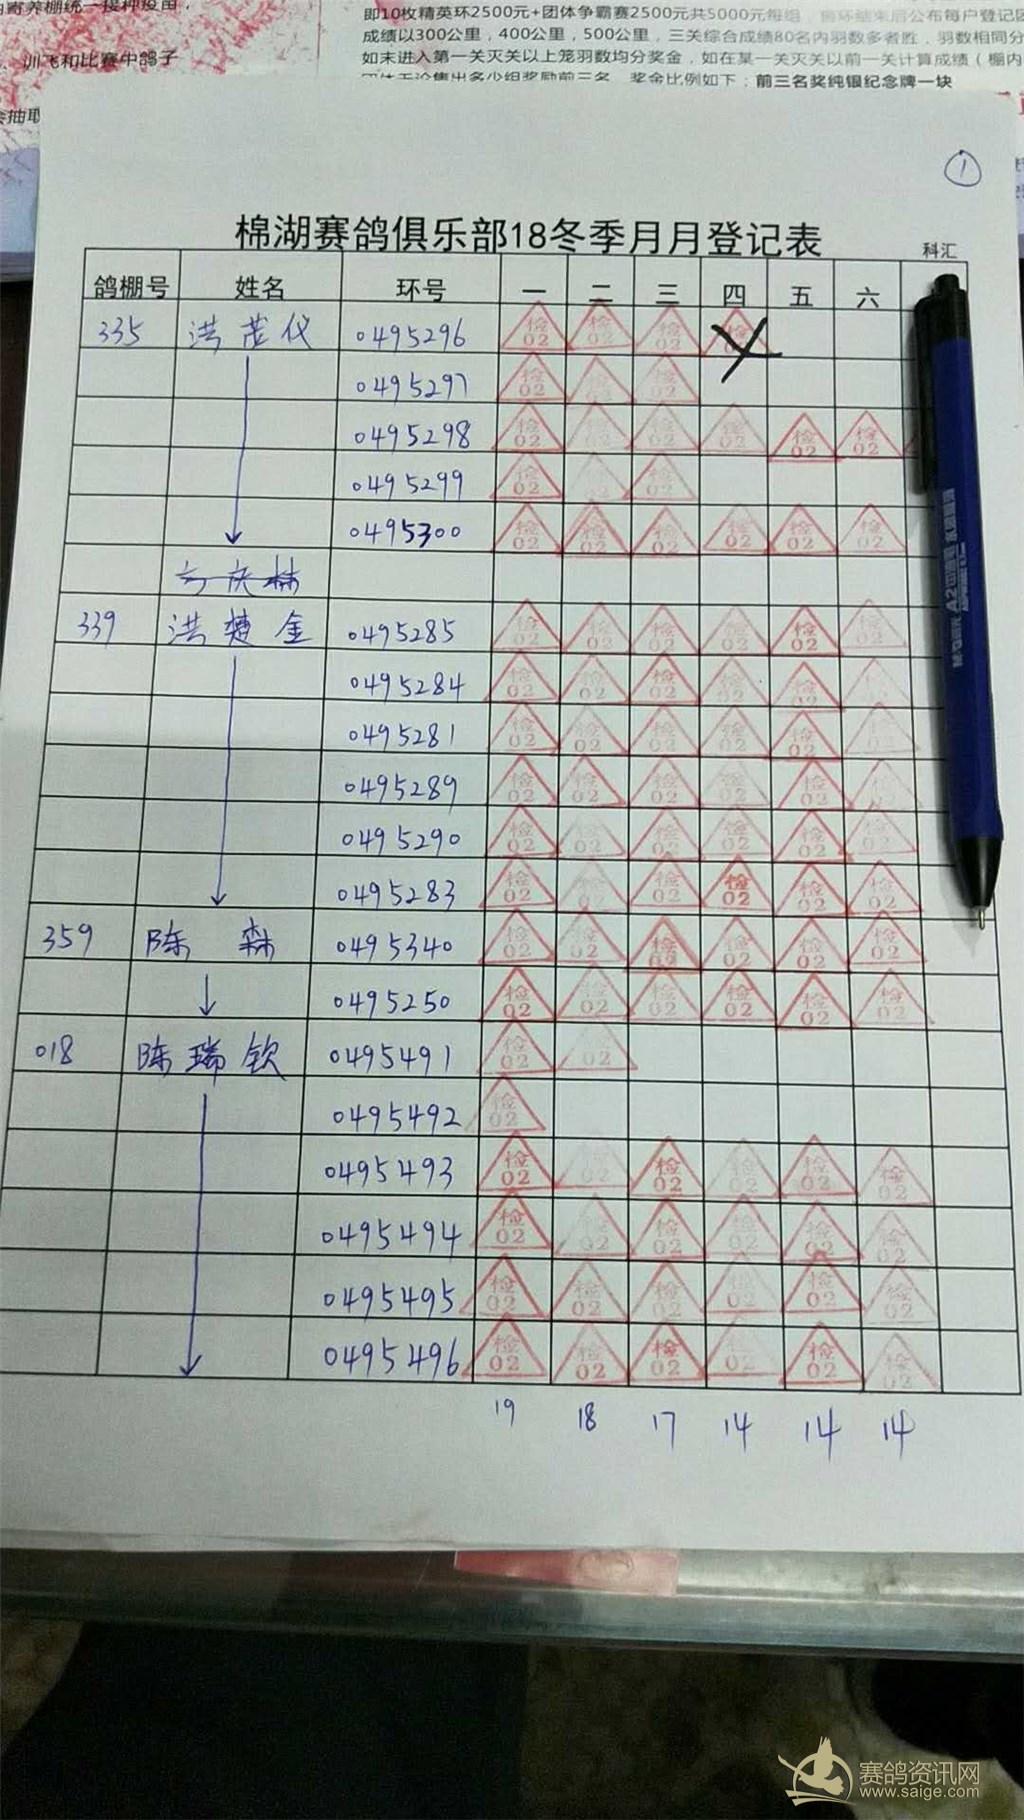 即10枚精英环2500元+团体争霸赛2500元共5000元每组
成绩以300公里，400公里，500公里，三关综合成绩80名内羽数多者胜，羽数相同分
如未进入第一关灭关以上笼羽数均分奖金，如在某一关灭关以前一关计算成绩（棚内
奖金比例如下：前三名奖纯银纪念牌一块
训飞和比赛中鸽子
会抽取
1
棉湖赛鸽俱乐部18冬季月月登记表
科汇
鸽棚号 姓名 环号 一 二 三 四 五 六
335 洪茂仪 0495296 检02 检02 检02 检
0495297 检02 检02 检02
0495298 检02 检02 检02 检02 检02 检02
0495299 检02 02 检02
0495300 检02 检02 检02 检02 检02 检02
339 洪楚金 0495285 检02 检02 检02 检02 检02 检02
0495284 检02 检02 检02 检02 检02
0495281 检02 检02 检02 检02 检02 检02
0495289 检02 检02 检02 检02 检02
0495290 检02 检02 检02 检02 检02 检02
0495283 检02 检02 检02 检02 检02 检02
359 陈森 0495340 检02 检02 检02 检02 检02 检02
0495250 检02 检02 检02 检02 检02 检02
018 陈瑞钦 0495491 检02 02
0495492 检02
0495493 检02 02 检02 检02 检02 检02
0495494 检02 02 检02 检02 检02 检02
0495495 检02 检02 检02 检02 检02 检02
0495496 检02 检02 检02 02 检02 检02
19 18 17 14 14 14
M&G晨光 A2中油笔
赛鸽资讯网
www.saige.com